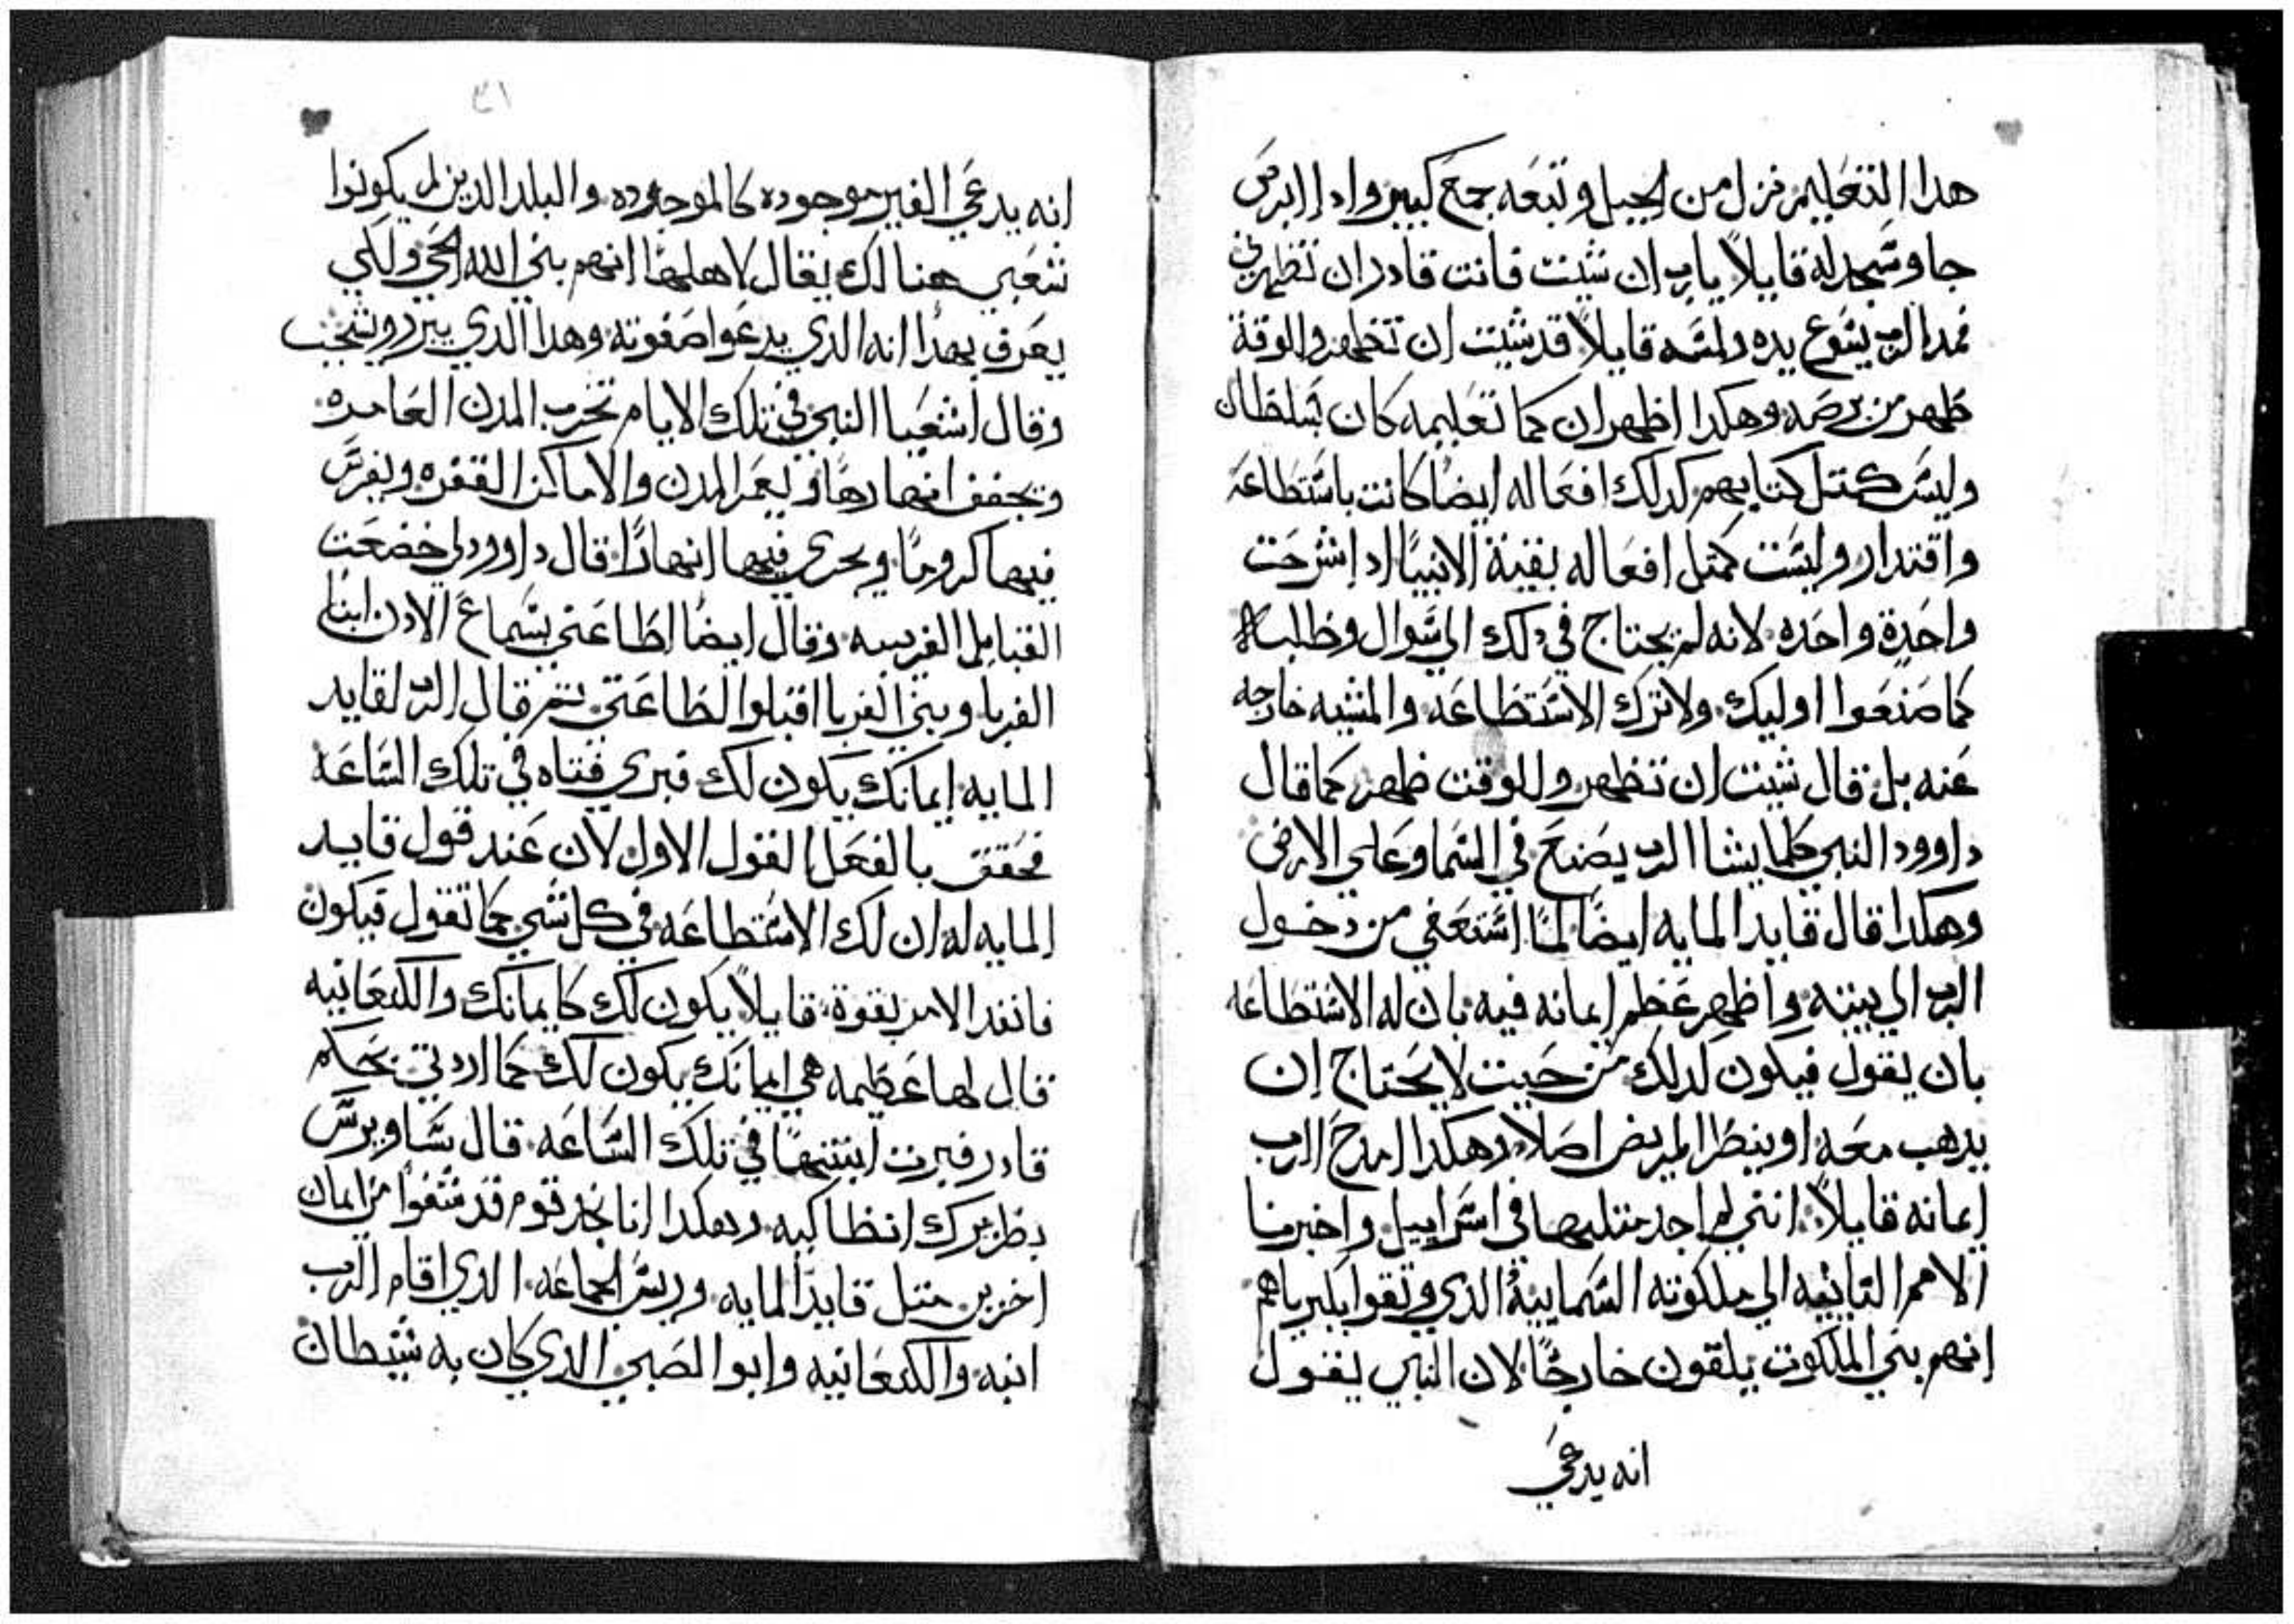 هدا التعليم نزل من الجبل وتبعه جمع كبير وادا ابرص
جا وسجد له قايلاً يارب ان شيت فانت قادر ان تطهرني
فمد الرب يسوع يده ولمسه قايلاً قد شيت ان تطهر وللوقت
طهر من برصه وهكدا اظهر ان كما تعليمه كان بسلطان
وليس كمتل كتابهم كدلك افعاله ايضاً كانت باستطاعه
واقتدار وليست كمتل افعاله بقية الانبيا اد اشرحت
واحدة واحده لانه لم يحتاج في دلك الي سوال وطلبه
كما صنعوا اوليك ولا ترك الاستطاعه والمشيه خارجه
عنه بل قال شيت ان تطهر وللوقت طهر كما قال
داوود النبي كلما يشا الرب يصنع في السما وعلي الارض
وهكدا قال قايد المايه ايضاً لما استعفي من دخول
الرب الي بيته واظهر عظم ايمانه فيه بان له الاستطاعه
بان يقول فيكون لدلك من حيت لا يحتاج ان
يدهب معه او ينظر المريض اصلاً وهكدا امدح الرب
ايمانه قايلاً انني لم اجد متلها في اسراييل واخبرنا
الامم التايهه الي ملكوته السماييه الدي وتقوا بكبرياهم
انهم بني الملكوت يلقون خارجاً لان النبي يقول
انه يدعي
٣١
انه يدعي الغير موجوده كالموجوده والبلد الدين لم يكونوا
شعبي هناك يقال لاهلها انهم بني الله الحي ولكي
يعرف بهدا انه الدي يدعوا صفوته وهدا الدي يبرر ويشجب
وقال اشعيا النبي في تلك الايام تخرب المدن العامره
وتجفف انهارها ويعمر المدن والاماكن القفره ويغرس
فيها كروماً ويجري فيها انهاراً قال داوود لي خضعت
القبايل الغريبه وقال ايضاً اطاعني بسماع الادن ابنا
الغربا وبني الغربا اقبلوا لطاعتي تم قال الرب لقايد
المايه ايمانك يكون لك فبري فتاه في تلك الساعه
فحقق بالفعل القول الاول لان عند قول قايد
المايه له ان لك الاستطاعه في كل شي كما تقول فيكون
فانفد الامر بقوة قايلاً يكون لك كايمانك والكنعانيه
قال لها عظيمه هي ايمانك يكون لك كما اردتي بحكم
قادر فبرت ابنتها في تلك الساعه قال ساويرس
بطريرك انطاكيه وهكدا انا نجد قوم قد شفوا من ايمان
اخرين متل قايد المايه وريس الجماعه الدي اقام الرب
ابنه والكنعانيه وابوا الصبي الدي كان به شيطان